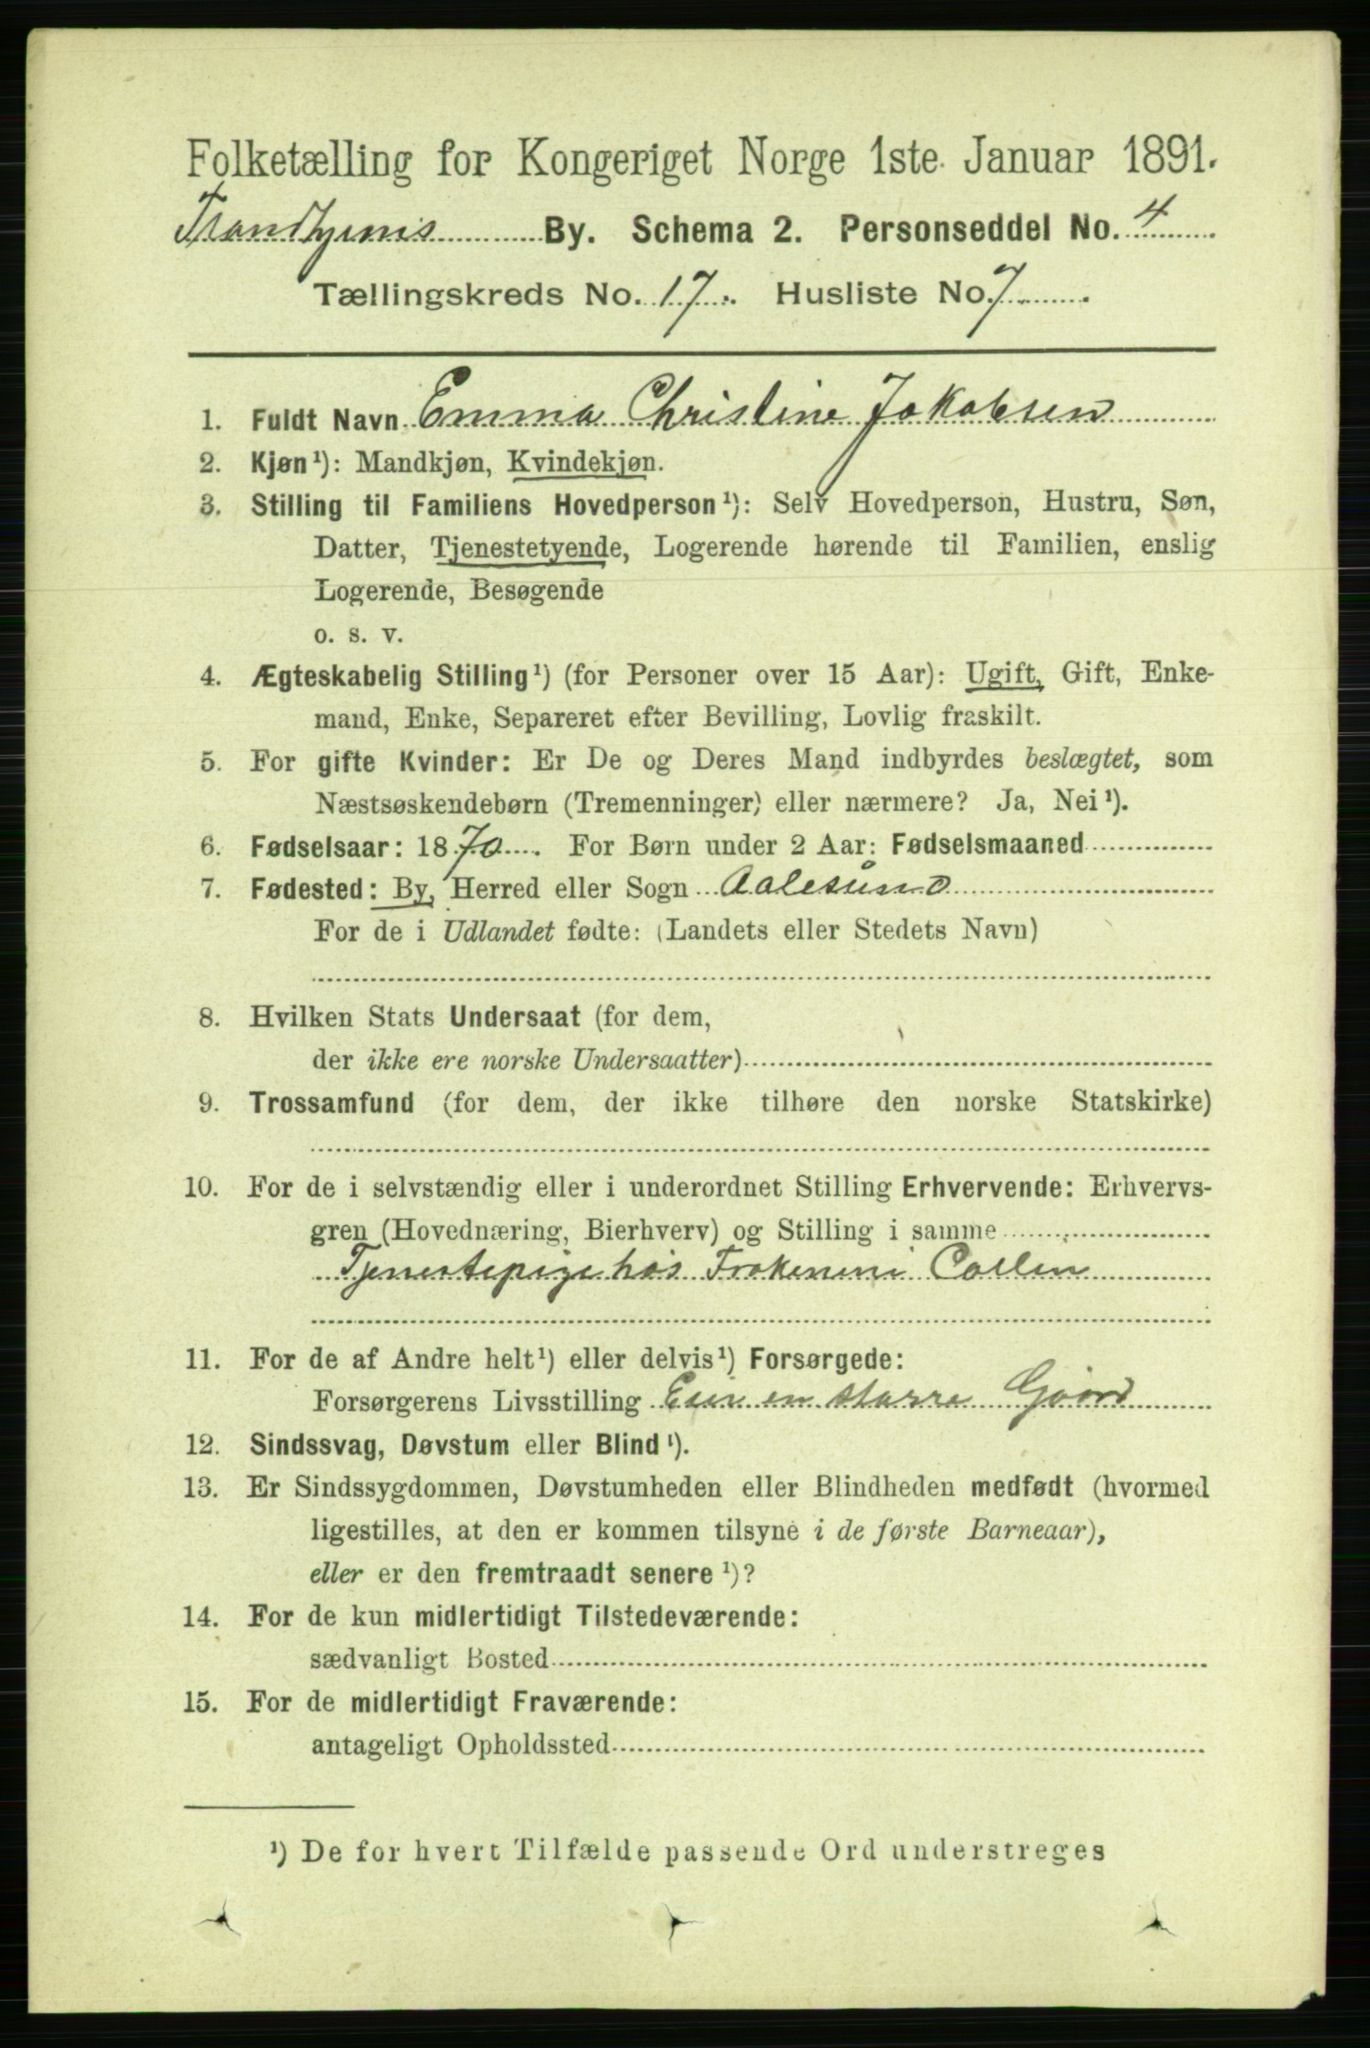 Folketælling for Kongeriget Norge 1ste Januar 1891.
Trondhjems By. Schema 2. Personseddel No. 4
Tællingskreds No. 17. Husliste No. 7
1. Fuldt Navn Emma Christine Jakobsen
2. Kjøn¹): Mandkjøn, Kvindekjøn.
3. Stilling til Familiens Hovedperson¹): Selv Hovedperson, Hustru, Søn,
Datter, Tjenestetyende, Logerende hørende til Familien, enslig
Logerende, Besøgende
o. s. v.
4. Ægteskabelig Stilling¹) (for Personer over 15 Aar): Ugift, Gift, Enke-
mand, Enke, Separeret efter Bevilling, Lovlig fraskilt.
5. For gifte Kvinder: Er De og Deres Mand indbyrdes beslægtet, som
Næstsøskendebørn (Tremenninger) eller nærmere? Ja, Nei¹).
6. Fødselsaar: 1870. For Børn under 2 Aar: Fødselsmaaned
7. Fødested: By, Herred eller Sogn Aalesund
For de i Udlandet fødte: (Landets eller Stedets Navn)
8. Hvilken Stats Undersaat (for dem,
der ikke ere norske Undersaatter)
9. Trossamfund (for dem, der ikke tilhøre den norske Statskirke)
10. For de i selvstændig eller i underordnet Stilling Erhvervende: Erhvervs-
gren (Hovednæring, Bierhverv) og Stilling i samme
Tjenestepige hos Collin
11. For de af Andre helt¹) eller delvis¹) Forsørgede:
Forsørgerens Livsstilling Eier en større Gaard
12. Sindssvag, Døvstum eller Blind¹).
13. Er Sindssygdommen, Døvstumheden eller Blindheden medfødt (hvormed
ligestilles, at den er kommen tilsyne i de første Barneaar),
eller er den fremtraadt senere¹)?
14. For de kun midlertidigt Tilstedeværende:
sædvanligt Bosted
15. For de midlertidigt Fraværende:
antageligt Opholdssted
¹) De for hvert Tilfælde passende Ord understreges